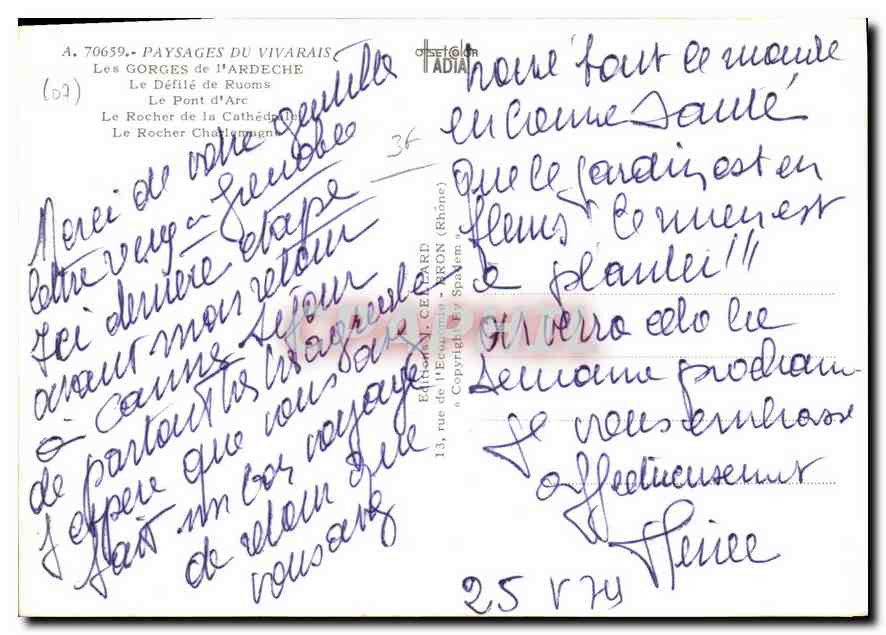 A. 70659.- PAYSAGES DU VIVARAIS
Les GORGES de l'ARDECHE
Le Défilé de Ruoms
Le Pont d'Arc
Le Rocher de la Cathédrale
Le Rocher Charlemagne
(07)
OFFSET COLOR
ADIA
3f
Merci de votre gentille
lettre Grenoble
Ici dernière étape
avant mon retour
à Canne séjour
de partout très agréable
J'espère que vous avez
fait un bon voyage
de retour que
vous avez
Editions J. CELLARD
13, rue de l'Economie - BRON (Rhône)
« Copyright By Spadem »
CPAPHIL
trouvé tout le monde
en bonne santé
que le jardin est en
fleurs le mien est
à planter !!!
on verra cela la
semaine prochain
Je vous embrasse
affectueusement
25 V 79